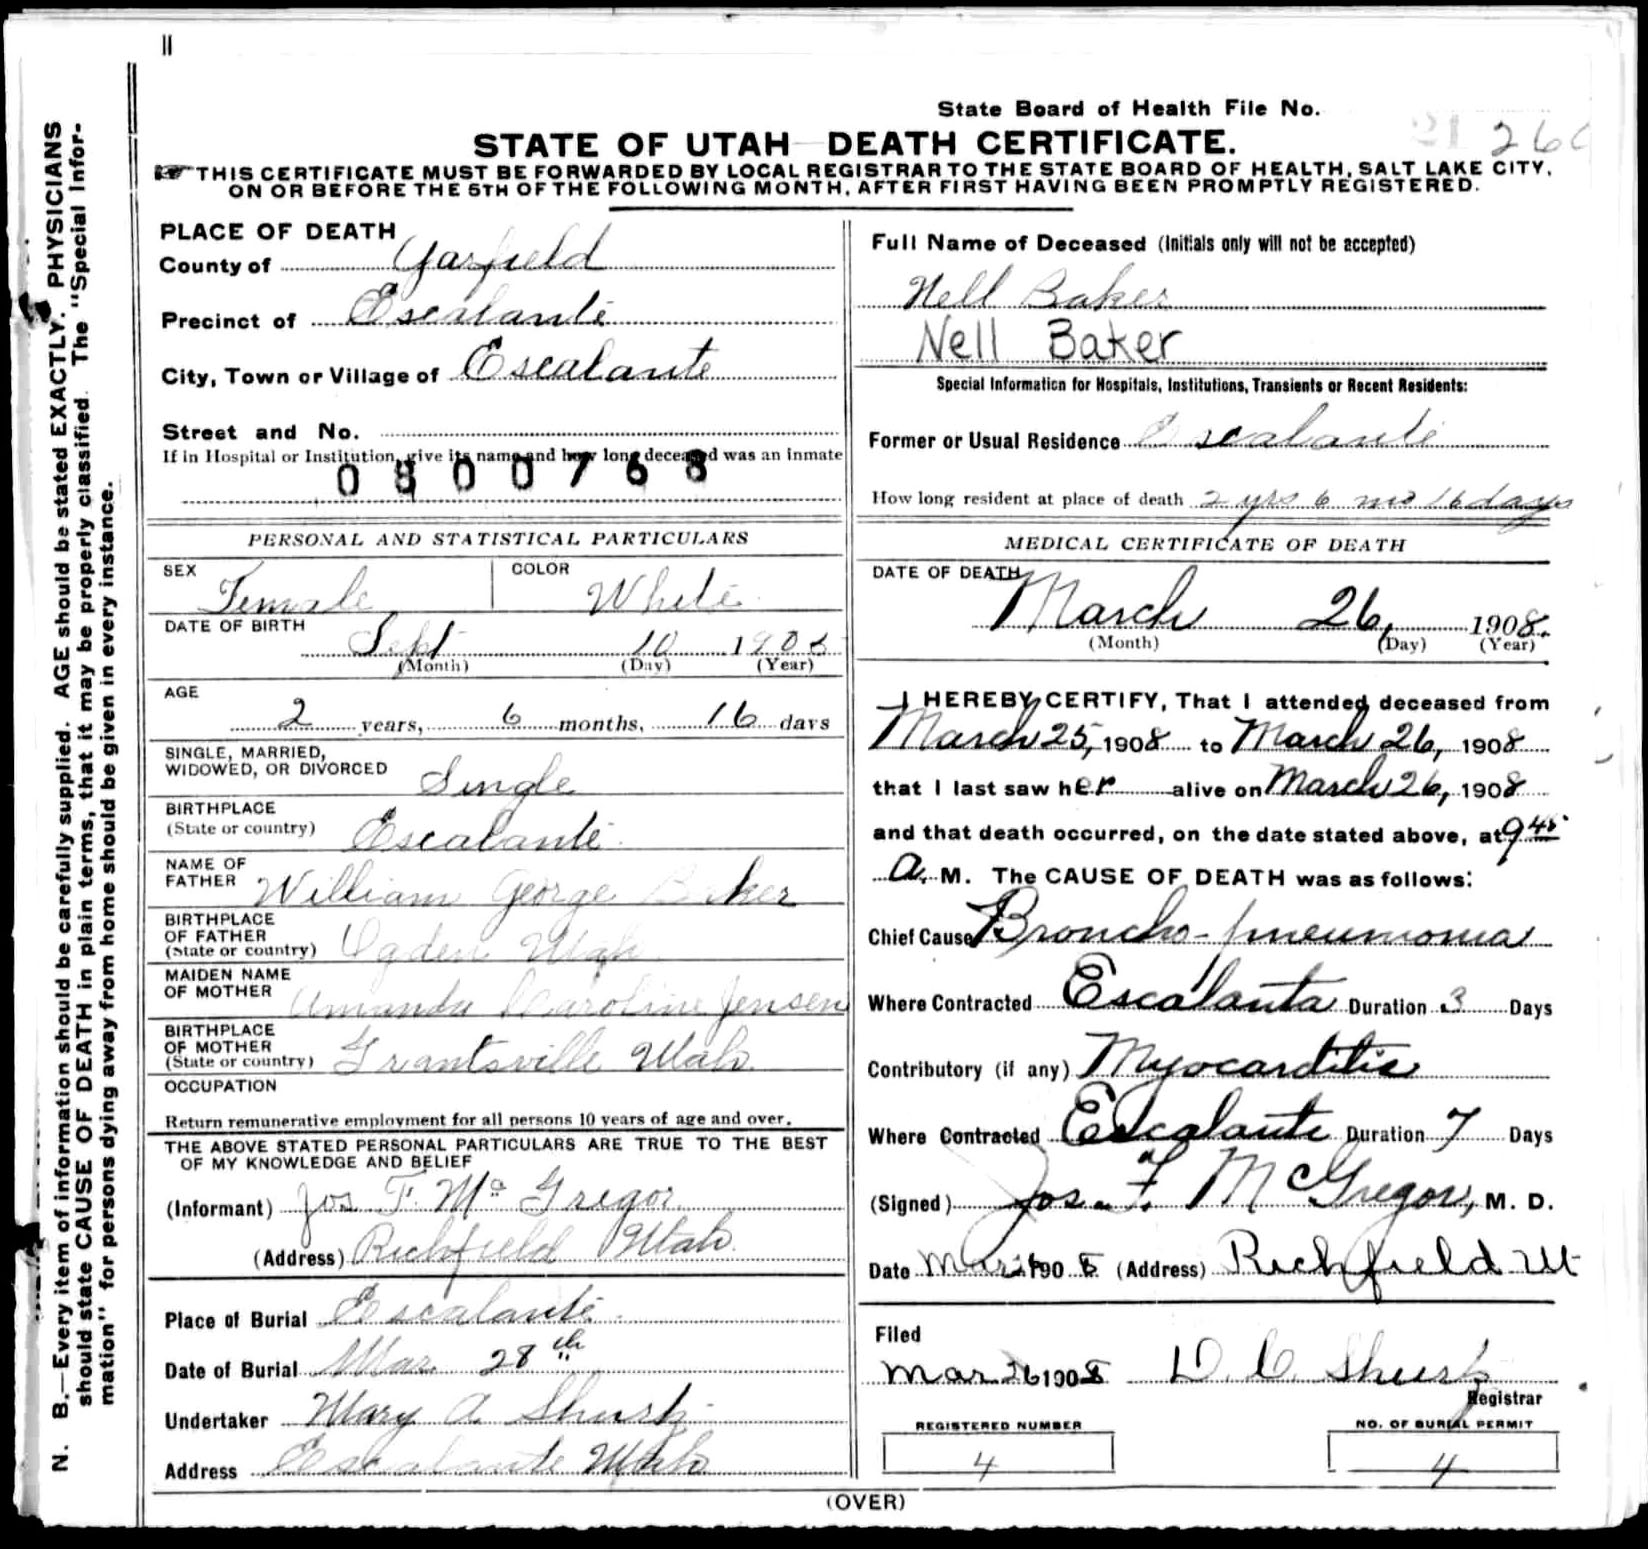 State Board of Health File No.
21 260
STATE OF UTAH DEATH CERTIFICATE.
THIS CERTIFICATE MUST BE FORWARDED BY LOCAL REGISTRAR TO THE STATE BOARD OF HEALTH, SALT LAKE CITY,
ON OR BEFORE THE 5TH OF THE FOLLOWING MONTH, AFTER FIRST HAVING BEEN PROMPTLY REGISTERED.
N. B.—Every item of information should be carefully supplied. AGE should be stated EXACTLY. PHYSICIANS
should state CAUSE OF DEATH in plain terms, that it may be properly classified. The "Special Infor-
mation" for persons dying away from home should be given in every instance.
PLACE OF DEATH
County of Garfield
Precinct of Escalante
City, Town or Village of Escalante
Street and No.
If in Hospital or Institution, give its name and how long deceased was an inmate
0800768
PERSONAL AND STATISTICAL PARTICULARS
SEX Female COLOR White
DATE OF BIRTH
Sept 10 1905
(Month) (Day) (Year)
AGE
2 years, 6 months, 16 days
SINGLE, MARRIED,
WIDOWED, OR DIVORCED Single
BIRTHPLACE
(State or country) Escalante
NAME OF
FATHER William George Baker
BIRTHPLACE
OF FATHER
(State or country) Ogden Utah
MAIDEN NAME
OF MOTHER Amanda Caroline Jensen
BIRTHPLACE
OF MOTHER
(State or country) Grantsville Utah
OCCUPATION
Return remunerative employment for all persons 10 years of age and over.
THE ABOVE STATED PERSONAL PARTICULARS ARE TRUE TO THE BEST
OF MY KNOWLEDGE AND BELIEF
(Informant) Jos F. McGregor
(Address) Richfield Utah
Place of Burial Escalante
Date of Burial Mar 28th
Undertaker Mary A Shurtz
Address Escalante Utah
Full Name of Deceased (Initials only will not be accepted)
Nell Baker
Nell Baker
Special Information for Hospitals, Institutions, Transients or Recent Residents:
Former or Usual Residence Escalante
How long resident at place of death 2 yrs 6 mo 16 days
MEDICAL CERTIFICATE OF DEATH
DATE OF DEATH
March 26, 1908.
(Month) (Day) (Year)
I HEREBY CERTIFY, That I attended deceased from
March 25, 1908 to March 26, 1908
that I last saw her alive on March 26, 1908
and that death occurred, on the date stated above, at 9 45
A. M. The CAUSE OF DEATH was as follows:
Chief Cause Broncho-pneumonia
Where Contracted Escalanta Duration 3 Days
Contributory (if any) Myocarditis
Where Contracted Escalante Duration 7 Days
(Signed) Jos. F. McGregor, M. D.
Date Mar 26 1908 (Address) Richfield Ut
Filed
Mar 26 1908 D. C. Shurtz
Registrar
REGISTERED NUMBER NO. OF BURIAL PERMIT
4 4
(OVER)